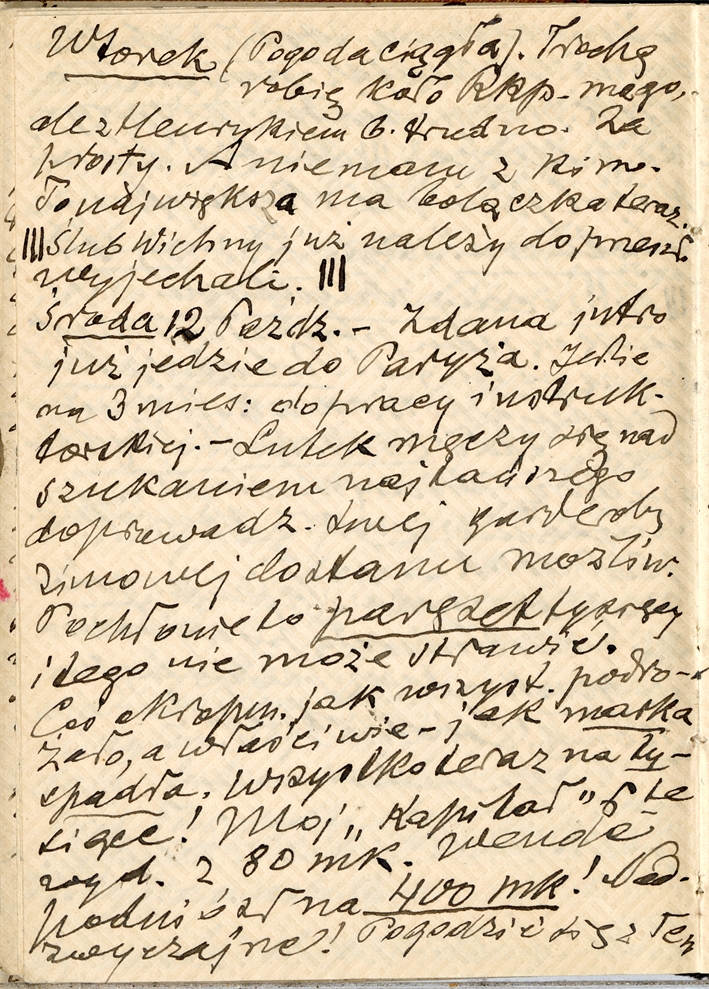 Wtorek (Pogoda ciągła). Trochę
robię koło Rkp. mego,
ale z Henrykiem b. trudno. Za
prosty. A nie mam z kim.
To największa ma bolączka teraz.
Ślub Wichny już należy do przeszł.
wyjechali.
Środa 12 Paźdz. – Zdana jutro
już jedzie do Paryża. Jedzie
na 3 mies: do pracy instruk-
torskiej. – Lutek męczy się nad
szukaniem najtańszego
doprowadz. swej garderoby
zimowej do stanu możliw.
Pochłonie to paręset tysięcy
i tego nie może strawić.
Coś okropn. jak wszyst. podro-
żało, a właściwie – jak marka
spadła. Wszystko teraz na ty-
siące! Mój „Kapitał" te
wyd. z 80 mk. Wende
podniósł na 400 mk! Nad-
zwyczajne! Pogodzić się z tem